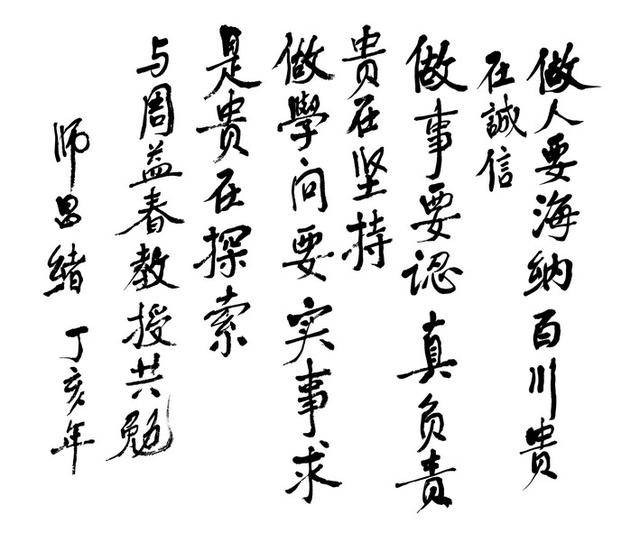 做人要海纳百川贵
在誠信
做事要認真负责
贵在坚持
做學问要实事求
是贵在探索
与周益春教授共勉
师昌緒 丁亥年